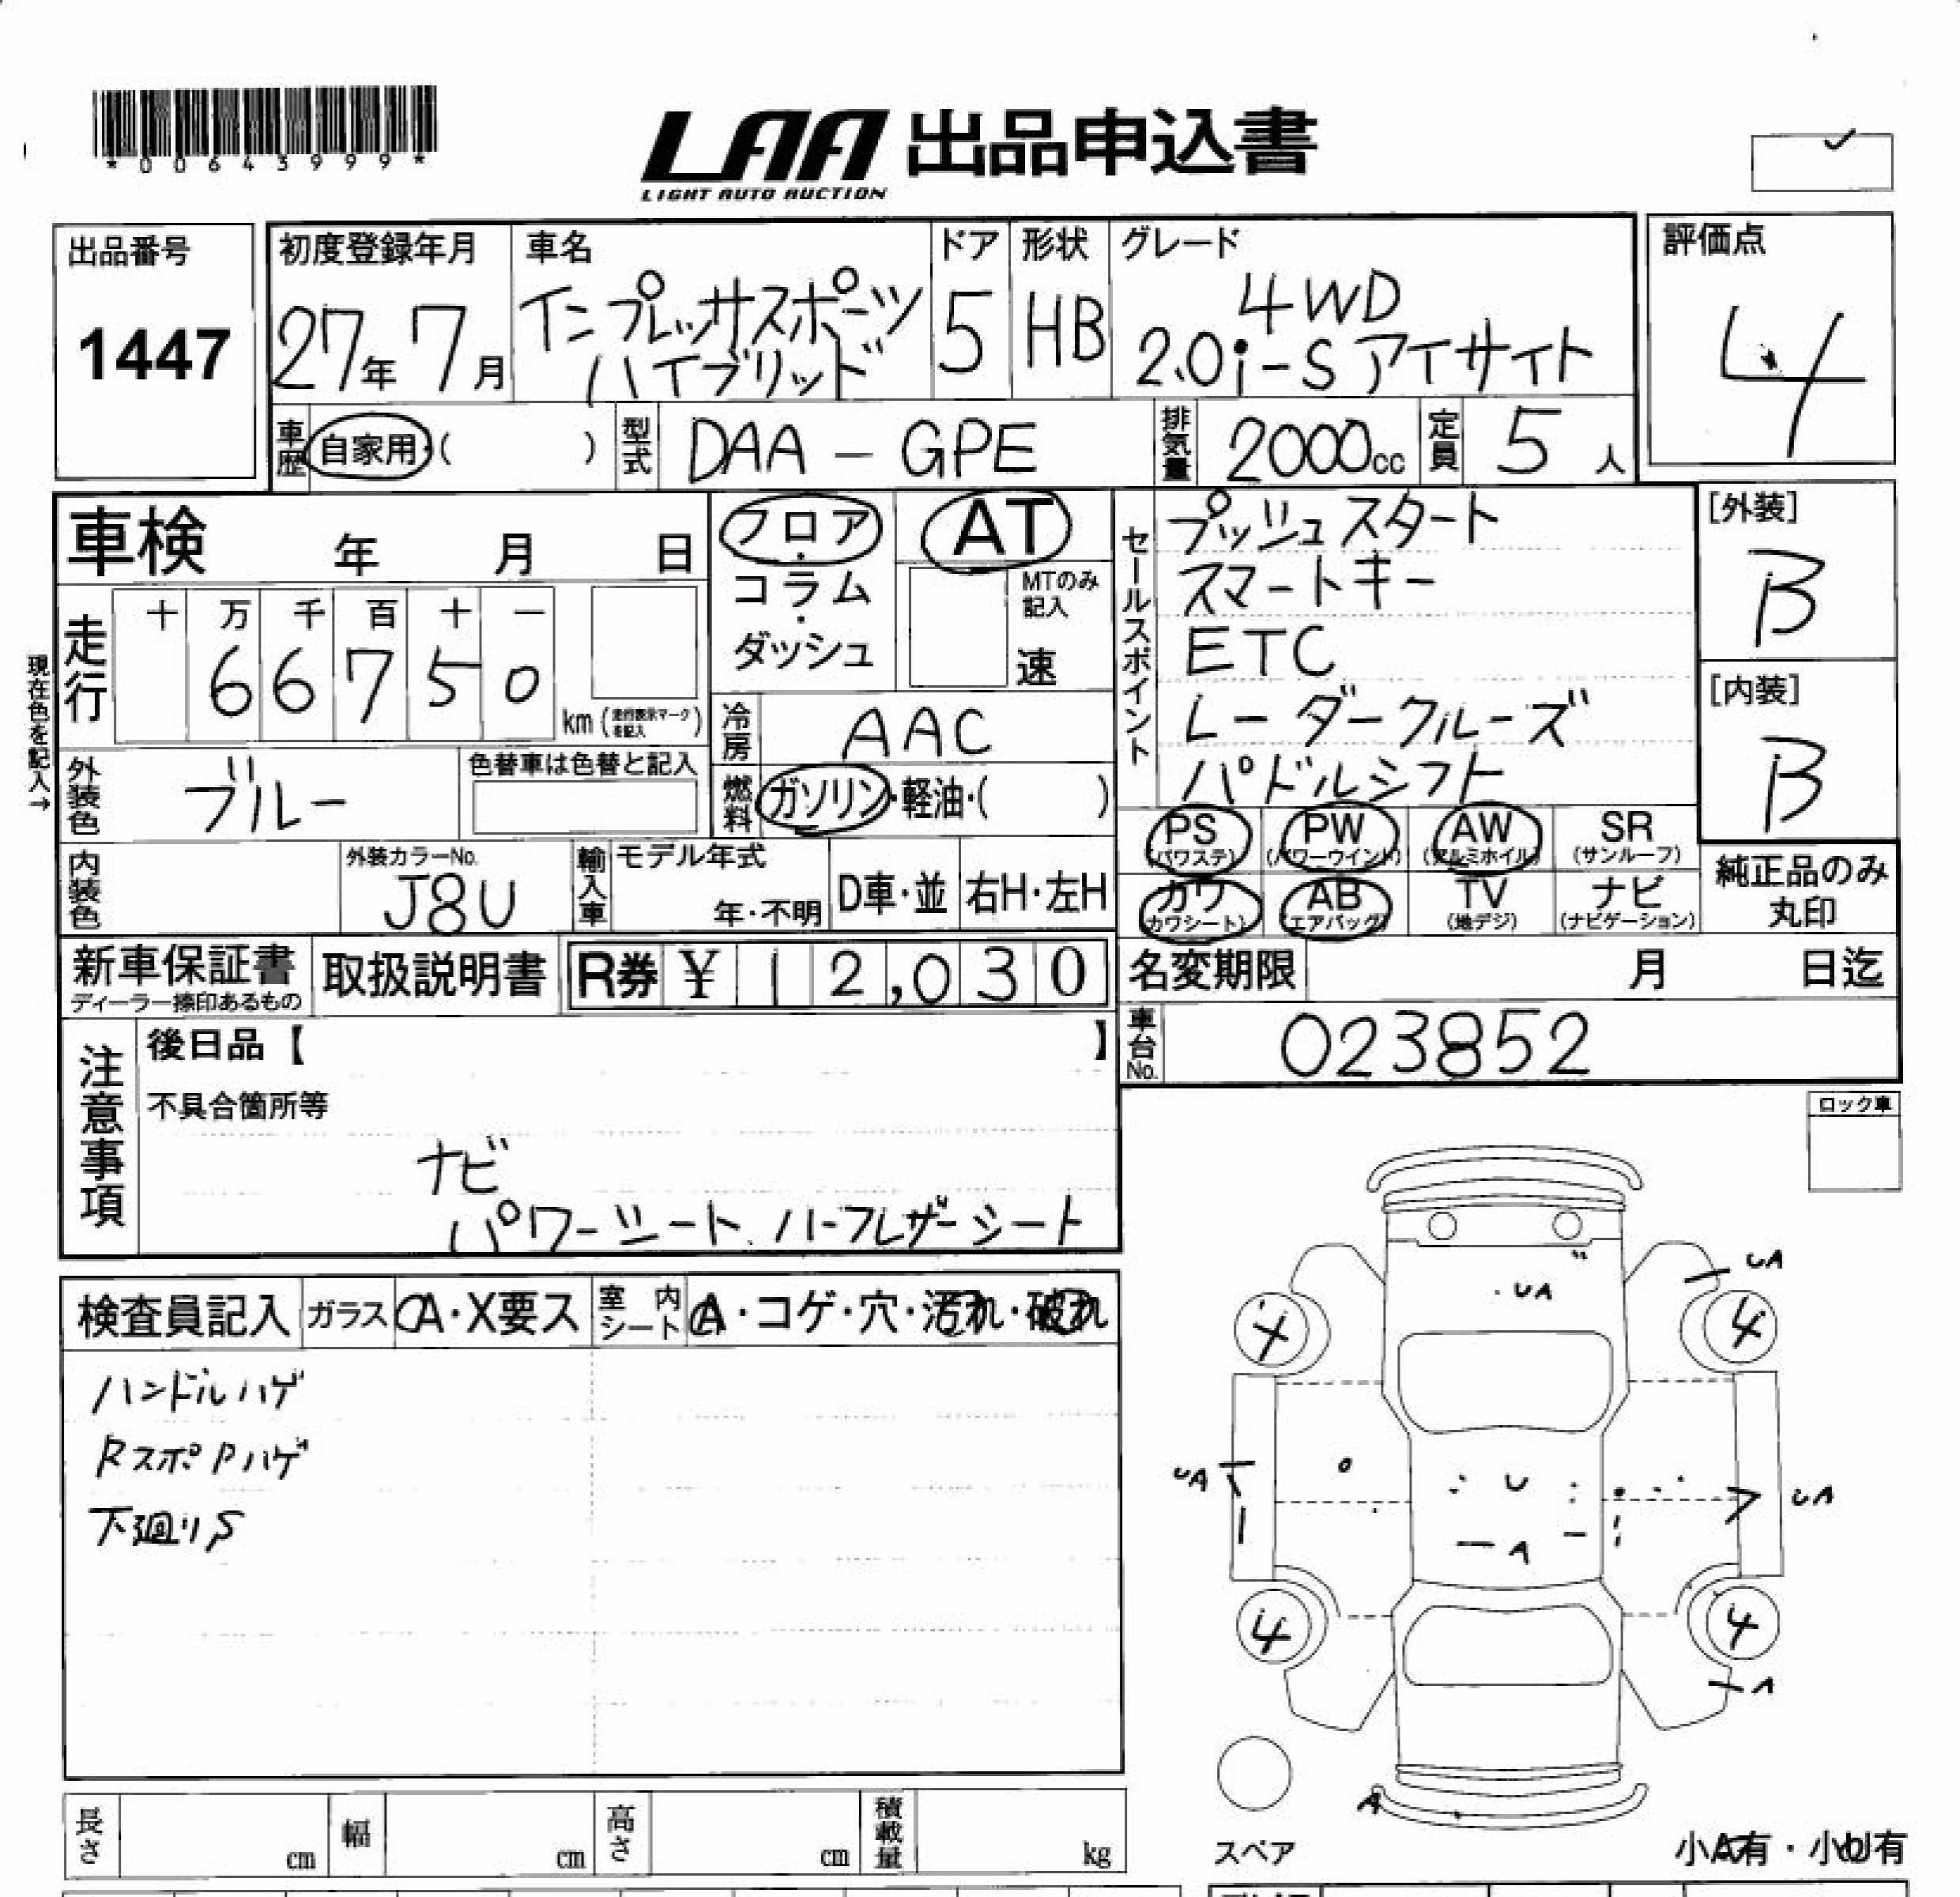 *00643999*
LAA 出品申込書
LIGHT AUTO AUCTION
出品番号
1447
初度登録年月
27年 7月
車名
インプレッサスポーツ
ハイブリッド
ドア
5
形状
HB
グレード
4WD
2.0i-S アイサイト
評価点
4
車歴
自家用・( )
型式
DAA - GPE
排気量
2000cc
定員
5人
車検 年 月 日
フロア・コラム・ダッシュ
AT
MTのみ記入
速
セールスポイント
プッシュスタート
スマートキー
ETC
レーダークルーズ
パドルシフト
[外装]
B
[内装]
B
現在色を記入→
走行
十 万 千 百 十 一
6 6 7 5 0
km (走行表示マークを記入)
冷房
AAC
外装色
ブルー
色替車は色替と記入
燃料
ガソリン・軽油・( )
PS (パワステ)
PW (パワーウインド)
AW (アルミホイル)
SR (サンルーフ)
カワ (カワシート)
AB (エアバッグ)
TV (地デジ)
ナビ (ナビゲーション)
純正品のみ
丸印
内装色
外装カラーNo.
J8U
輸入車
モデル年式
年・不明
D車・並
右H・左H
新車保証書
ディーラー捺印あるもの
取扱説明書
R券 ¥ 12,030
名変期限 月 日迄
車台No.
023852
注意事項
後日品【 】
不具合箇所等
ナビ
パワーシート. ハーフレザーシート
ロック車
検査員記入
ガラス
A・X要ス
室内シート
A・コゲ・穴・汚れ・破れ
ハンドルハゲ
RスポPハゲ
下廻りS
UA
UA
4
4
UA
U
UA
A
4
4
A
A
スペア
小A有・小U有
長さ cm
幅 cm
高さ cm
積載量 kg